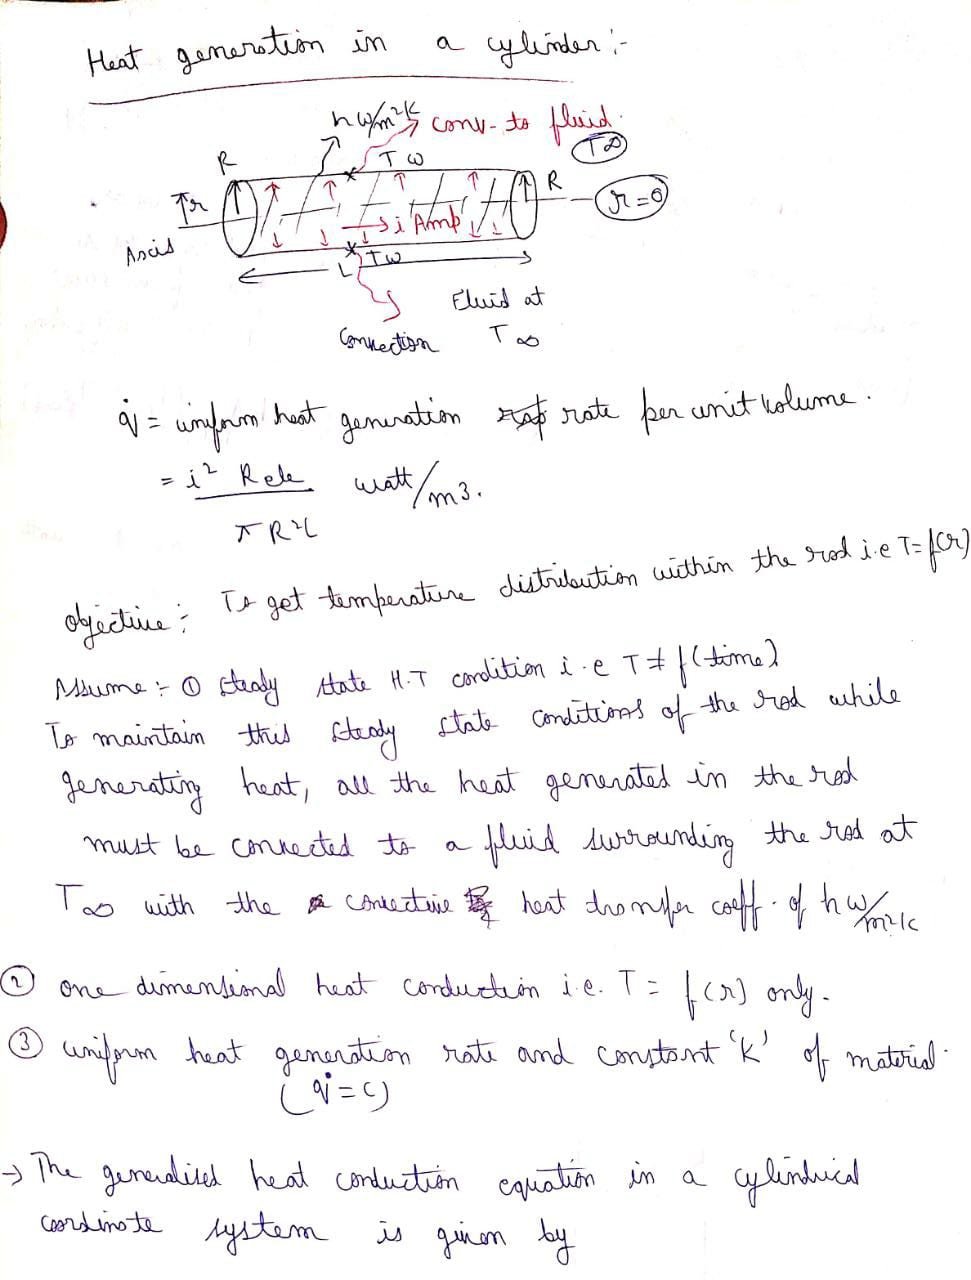 Heat generation in a cylinder :-
h w/m²K conv. to fluid.
T∞
R Tw
R r=0
r
i Amp
Axis
Tw
L
Fluid at
Convection T∞
q̇ = uniform heat generation rate per unit volume.
= i² Rele watt/m3.
πR²L
objective :- To get temperature distribution within the rod i.e T=f(r)
Assume :- ① steady state H.T condition i.e T ≠ f(time)
To maintain this steady state conditions of the rod while
generating heat, all the heat generated in the rod
must be convected to a fluid surrounding the rod at
T∞ with the convective heat transfer coeff. of h w/m²K
② one dimensional heat conduction i.e. T = f(r) only.
③ uniform heat generation rate and constant 'K' of material.
(q̇ = c)
→ The generalised heat conduction equation in a cylindrical
coordinate system is given by